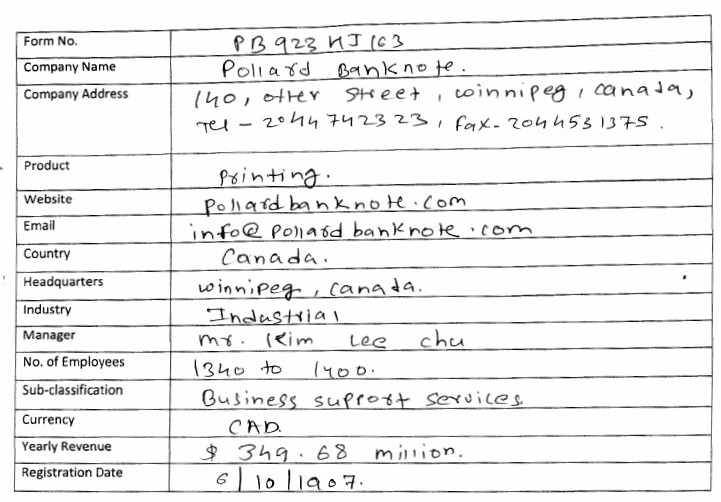 Form No. PB923HJ163
Company Name Pollard Banknote.
Company Address 140, otter street, winnipeg, canada,
Tel - 2044742323, fax- 2044531375.
Product Printing.
Website pollardbanknote.com
Email info@pollardbanknote.com
Country Canada.
Headquarters winnipeg, canada.
Industry Industrial
Manager mr. Kim Lee chu
No. of Employees 1340 to 1400.
Sub-classification Business support services
Currency CAD.
Yearly Revenue $ 349.68 million.
Registration Date 6/10/1907.